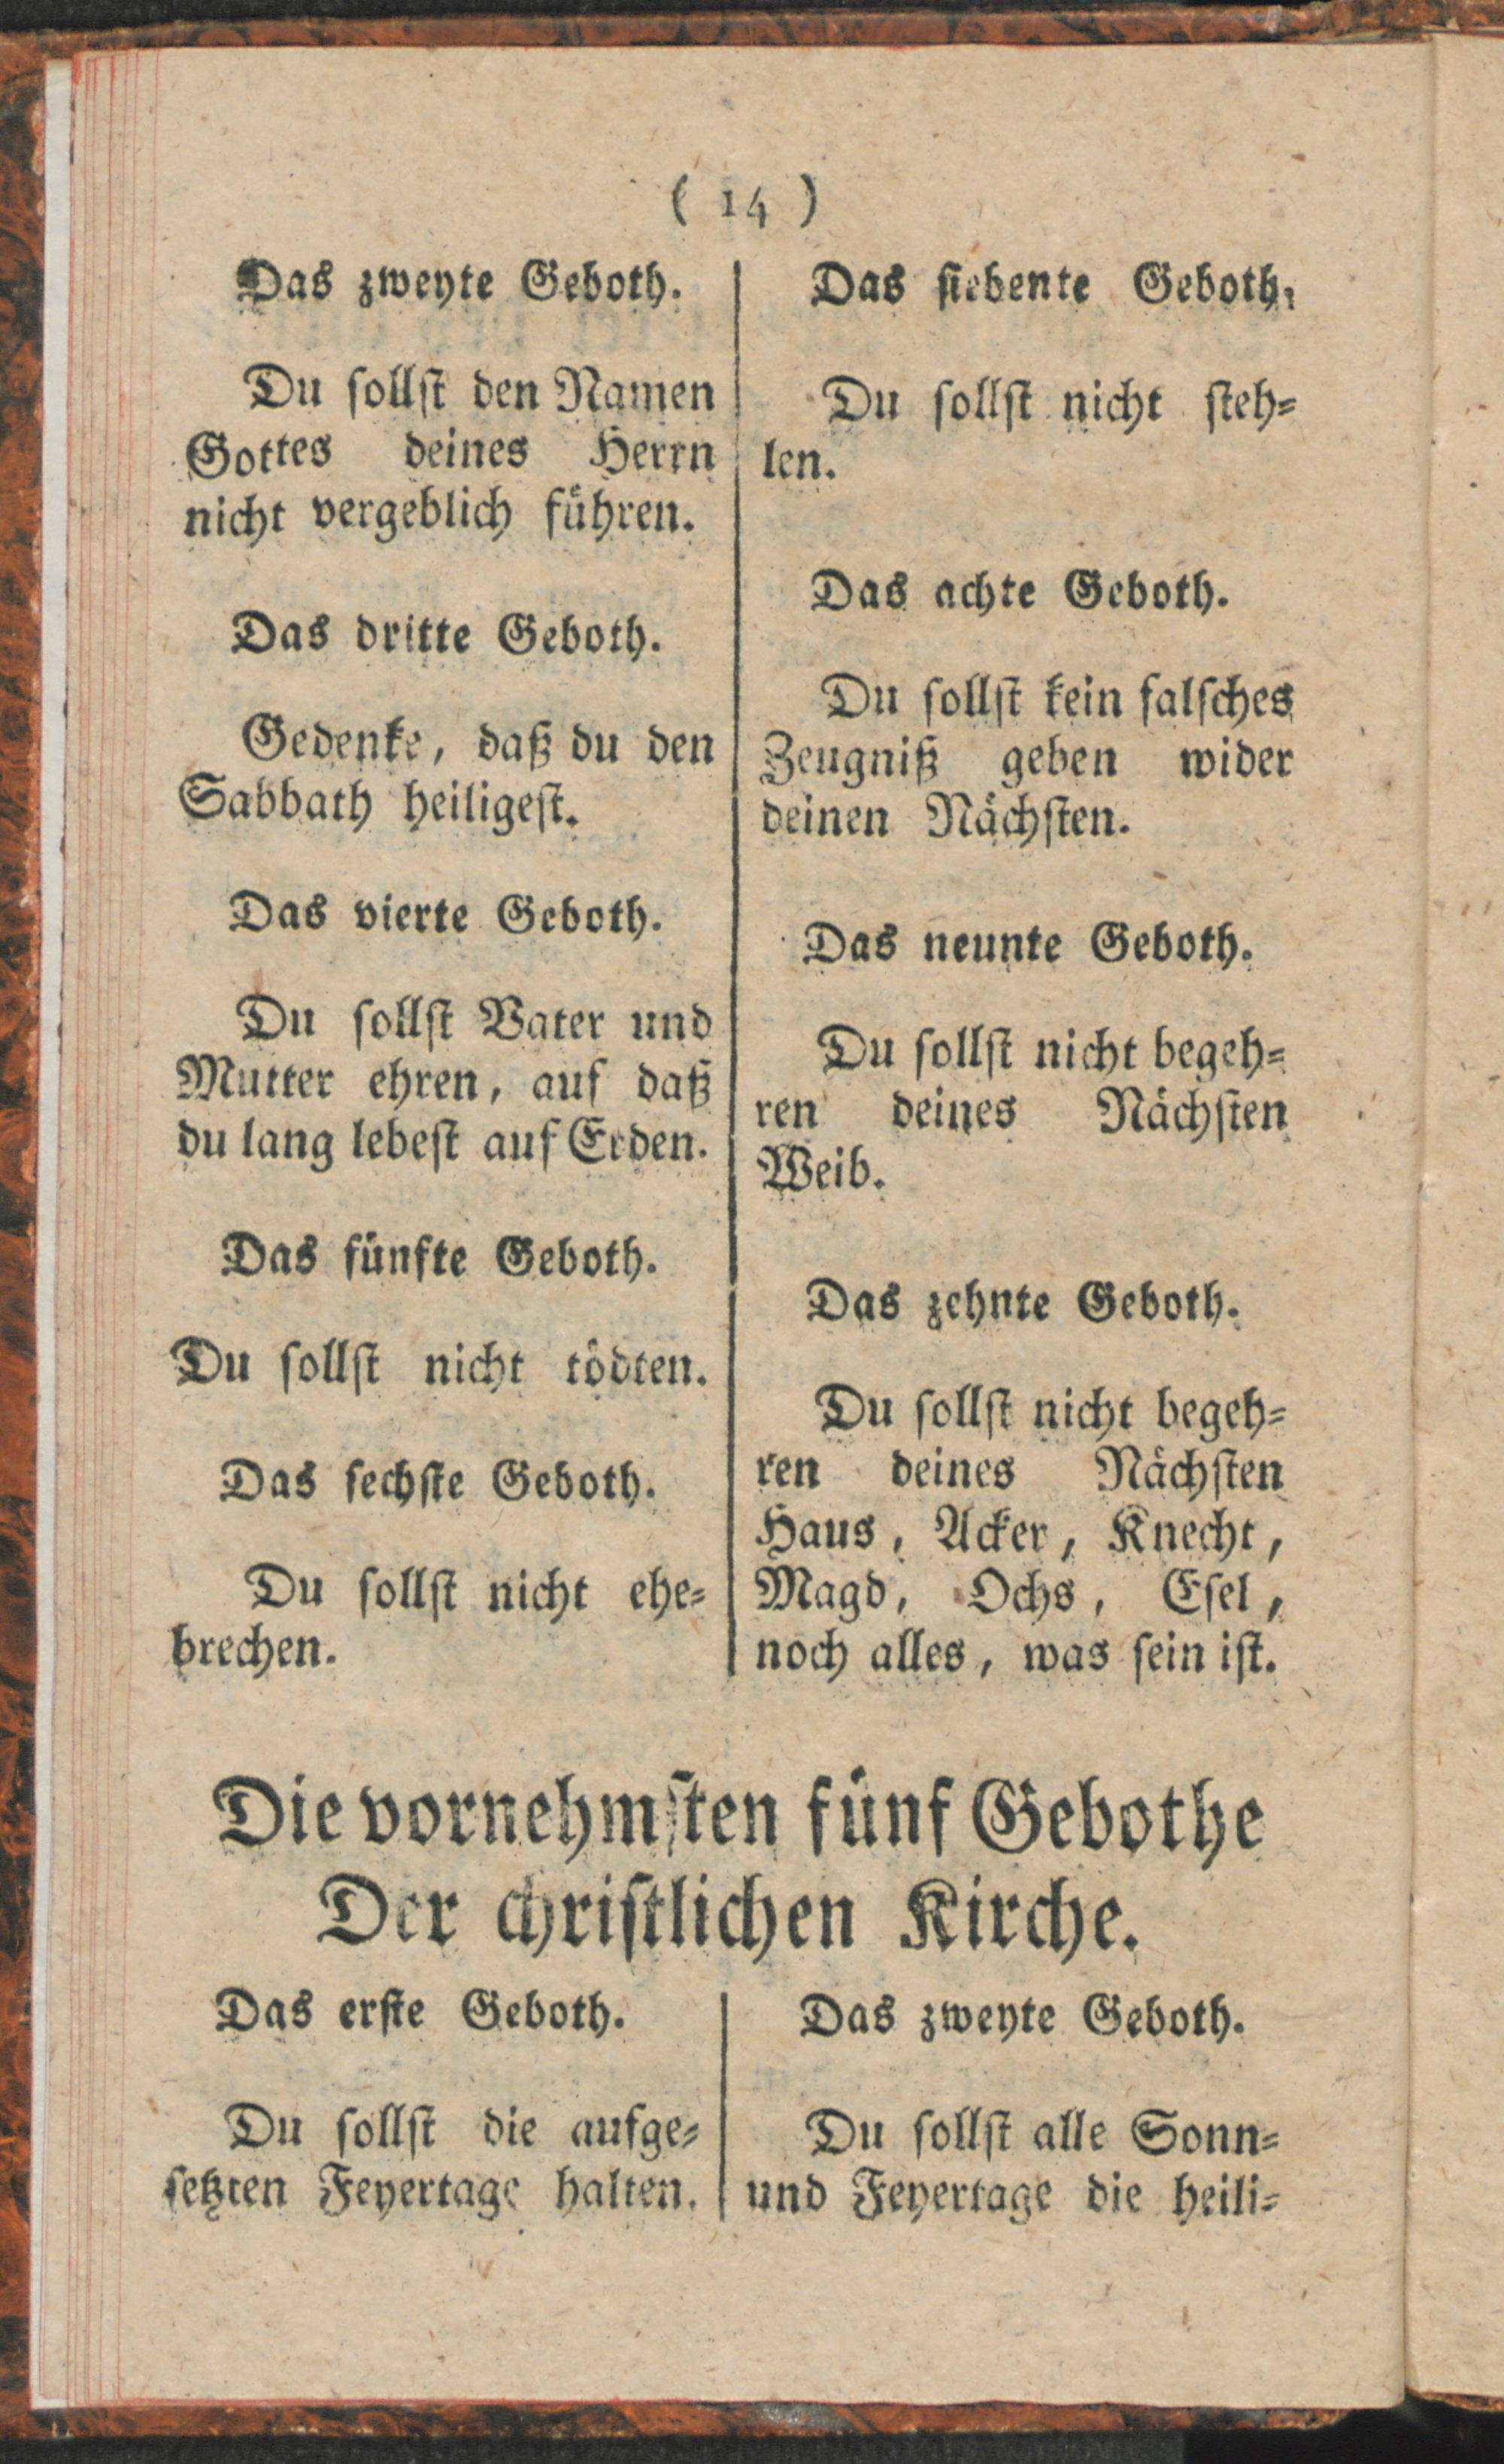 ( 14 )
Das zweyte Geboth.
Du sollst den Namen
Gottes deines Herrn
nicht vergeblich führen.
Das dritte Geboth.
Gedenke, daß du den
Sabbath heiligest.
Das vierte Geboth.
Du sollst Vater und
Mutter ehren, auf daß
du lang lebest auf Erden.
Das fünfte Geboth.
Du sollst nicht tödten.
Das sechste Geboth.
Du sollst nicht ehe=
brechen.
Das siebente Geboth.
Du sollst nicht steh=
len.
Das achte Geboth.
Du sollst kein falsches
Zeugniß geben wider
deinen Nächsten.
Das neunte Geboth.
Du sollst nicht begeh=
ren deines Nächsten
Weib.
Das zehnte Geboth.
Du sollst nicht begeh=
ren deines Nächsten
Haus, Acker, Knecht,
Magd, Ochs, Esel,
noch alles, was sein ist.
Die vornehmsten fünf Gebothe
Der christlichen Kirche.
Das erste Geboth.
Du sollst die aufge=
setzten Feyertage halten.
Das zweyte Geboth.
Du sollst alle Sonn=
und Feyertage die heili=